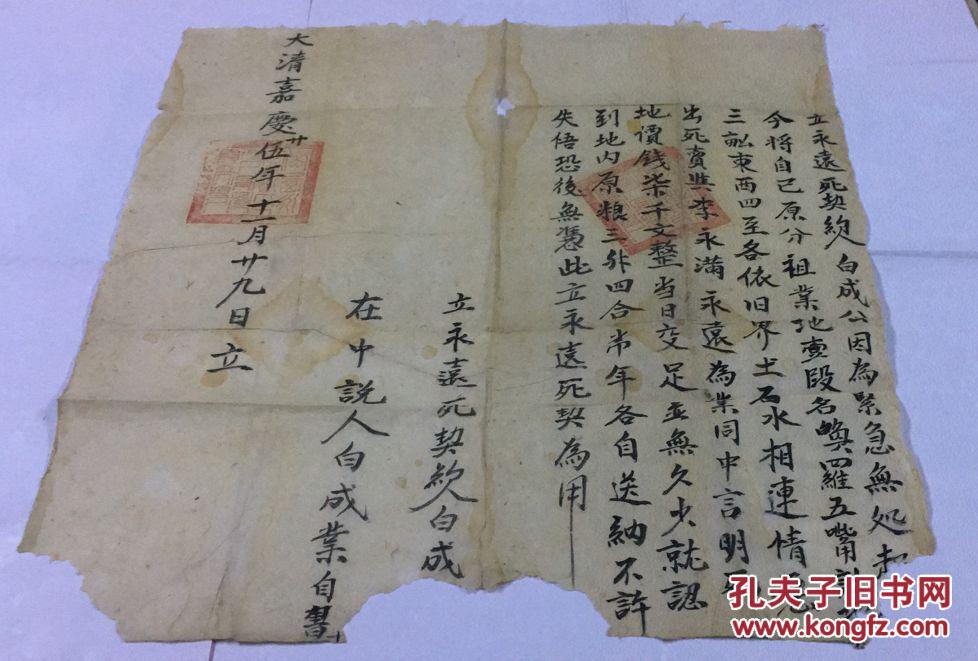 立永遠死契約人白成公因為緊急無処
今将自己原分祖業地壹段名喚羅五嘴
三畝東西四至各依旧界土石水相連情愿
出死賣與李永滿永遠為業同中言明
地價錢柒千文整当日交足並無欠少就認
到地内原粮三升四合当年各自送納不許
失悟恐後無憑此立永遠死契為用
立永遠死契約人白成
在中説人白成業自書
大清嘉慶廿伍年十一月廿九日立
孔夫子旧书网
www.kongfz.com